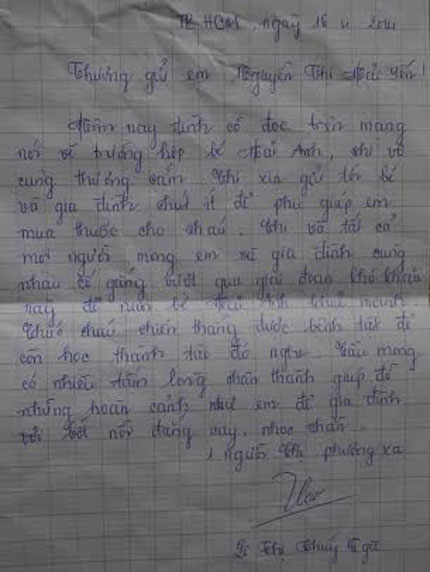 TP. HCM, ngày 16
Thương gửi em Nguyễn Thị Hải Yến!
Hôm nay tình cờ đọc trên mạng
nói về trường hợp bé Hải Anh, chị vô
cùng thương cảm. Chị xin gửi tới bé
và gia đình chút ít để phụ giúp em
mua thuốc cho cháu. Chị và tất cả
mọi người mong em và gia đình cùng
nhau cố gắng vượt qua giai đoạn khó khăn
này để nuôi bé Hải Anh khỏe mạnh
Chúc cháu chiến thắng được bệnh tật để
còn học thành tài đó nghe. Cầu mong
có nhiều tấm lòng chân thành giúp đỡ
những hoàn cảnh như em để gia đình
với bớt nỗi đắng cay, nhọc nhằn.
1 người chị phương xa
Thị Thúy Nga